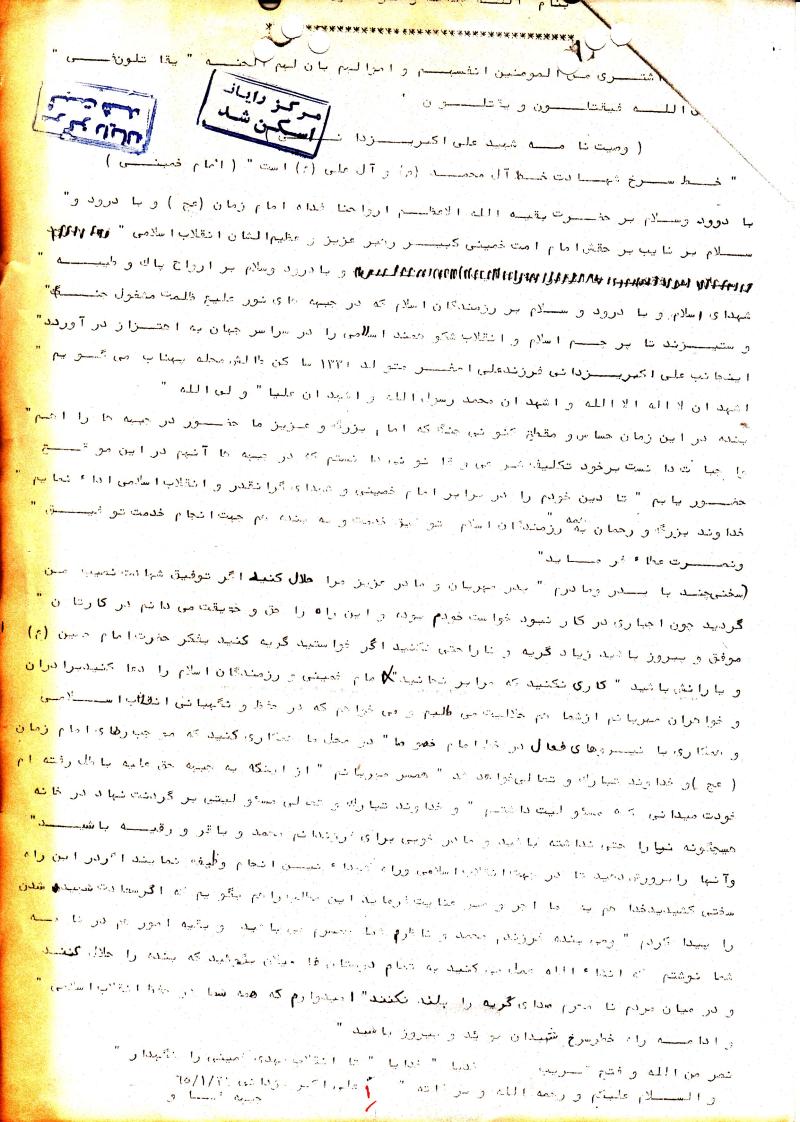 بنام الله
اشتری من المومنین انفسهم و اموالهم بان لهم الجنه " یقاتلون فی
الله فیقتلون و یقتلون "
مرکز رایانه
اسکن شد
( وصیت نامه شهید علی اکبر یزدانی
" خط سرخ شهادت خط آل محمد (ص) و آل علی (ع) است " ( امام خمینی )
با درود وسلام بر حضرت بقیه الله الاعظم ارواحنا فداه امام زمان (عج) و با درود و"
سلام بر نایب بر حقش امام امت خمینی کبیر رهبر عزیز و عظیم الشان انقلاب اسلامی "
و با درود وسلام بر ارواح پاک و طیبه "
شهدای اسلام و با درود و سلام بر رزمندگان اسلام که در جبهه های نور علیه ظلمت مشغول جنگ"
و ستیزند تا پرچم اسلام و انقلاب شکوهمند اسلامی را در سراسر جهان به اهتزاز در آورند"
اینجانب علی اکبر یزدانی فرزند علی اصغر متولد ۱۳۳۱ ساکن محله می گویم "
اشهد ان لا اله الا الله و اشهد ان محمد رسول الله و اشهد ان علیا " ولی الله "
بنده در این زمان حساس و مقطع کنونی جنگ که امام بزرگ و عزیز ما حضور در جبهه ها را اهم"
واجبات دانست برخود تکلیف شرعی و قانونی دانستم که در جبهه ها آنهم در این موقع
حضور یابم " تا دین خودم را در برابر امام خمینی و شهدای گرانقدر و انقلاب اسلامی اداء نمایم "
خداوند بزرگ و رحمان به همه رزمندگان اسلام توفیق خدمت و به بنده هم جهت انجام خدمت توفیق "
ونصرت عطاء فرماید"
(سخنی چند با پدر ومادرم " پدر مهربان و مادر عزیز مرا حلال کنید اگر توفیق شهادت نصیب من
گردید چون اجباری در کار نبود خواست خودم بود، و این راه را حق و حقیقت می دانم در کارتان "
موفق و پیروز باشید زیاد گریه و ناراحتی نکنید اگر خواستید گریه کنید بفکر حضرت امام حسین (ع)
و یارانش باشید " کاری نکنید که مرا برنجانید امام خمینی و رزمندگان اسلام را دعا کنید برادران
و خواهران مهربانم ازشما هم حلالیت می طلبم و می خواهم که در حفظ و نگهبانی انقلاب اسلامی
و همکاری با نیروهای فعال در خط امام خصوصا" در محل ما همکاری کنید که موجب رضای امام زمان
( عج )و خداوند تبارک و تعالی خواهد شد " همسر مهربانم " از اینکه به جبهه حق علیه باطل رفته ام
خودت میدانی که مسئولیت داشتم " و خداوند تبارک و تعالی مسئولیتی بر گردنت نهاد در خانه
هیچگونه ناراحتی نداشته باشید و مادر خوبی برای فرزندانم محمد و باقر و رقیه باشید"
وآنها را پرورش دهید تا در جهت انقلاب اسلامی وراه شهداء انجام وظیفه نمایند اگر در این راه
سختی کشیدید خدا هم به شما اجر و صبر عنایت فرماید این مطلب را هم بگویم که اگر سعادت شهید شدن
را پیدا کردم " وصی بنده فرزندم محمد و ناظرم شما همسرم می باشید و بقیه امور هم در نامه
شما نوشتم که انشاء الله عمل می کنید به تمام دوستان بگوئید که بنده را حلال کنند
و در میان مردم نا محرم صدای گریه را بلند نکنند" امیدوارم که همه شما در حفظ انقلاب اسلامی "
و ادامه راه خط سرخ شهیدان موید و پیروز باشید "
نصر من الله و فتح قریب خدایا " خدایا " تا انقلاب مهدی خمینی را نگهدار "
والسلام علیکم و رحمه الله و برکاته " علی اکبر یزدانی
جبهه
۱